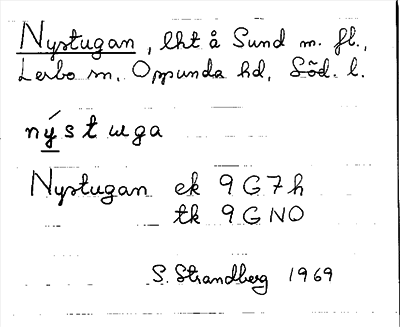 Nystugan, lht å Sund m. fl.,
Lerbo sn, Oppunda hd, Söd. l.
nýstuga
Nystugan ek 9G7h
tk 9GNO
S. Strandberg 1969